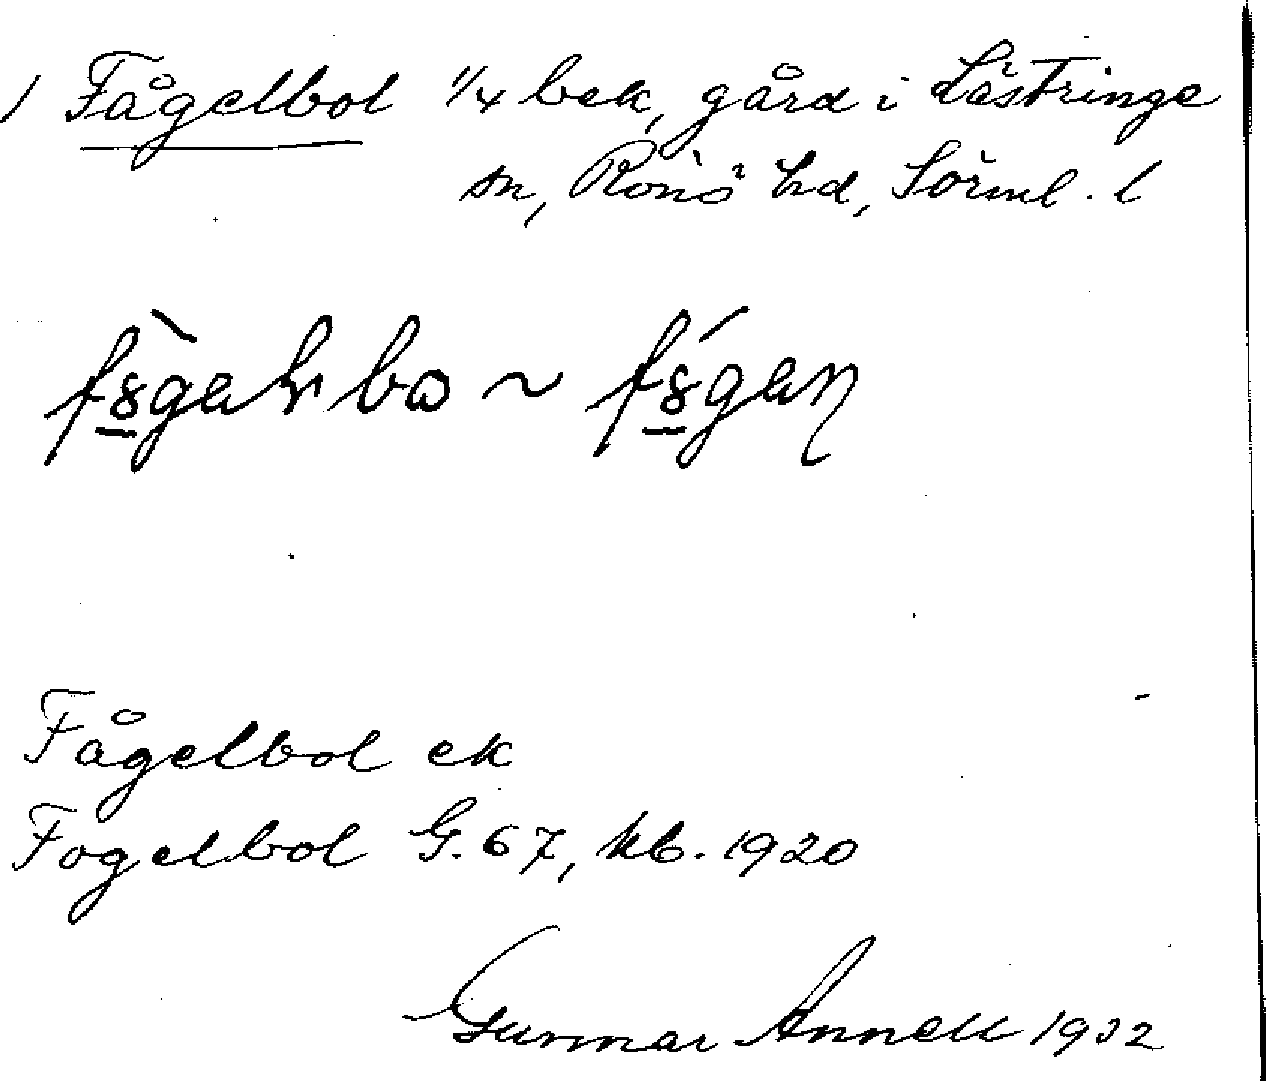 / Fågelbol 1/4 bek, gård i Lästringe
sn, Rönö hd, Sörml. l
Fågelbol ek
Fogelbol G. 67, kb. 1920
Gunnar Annell 1932